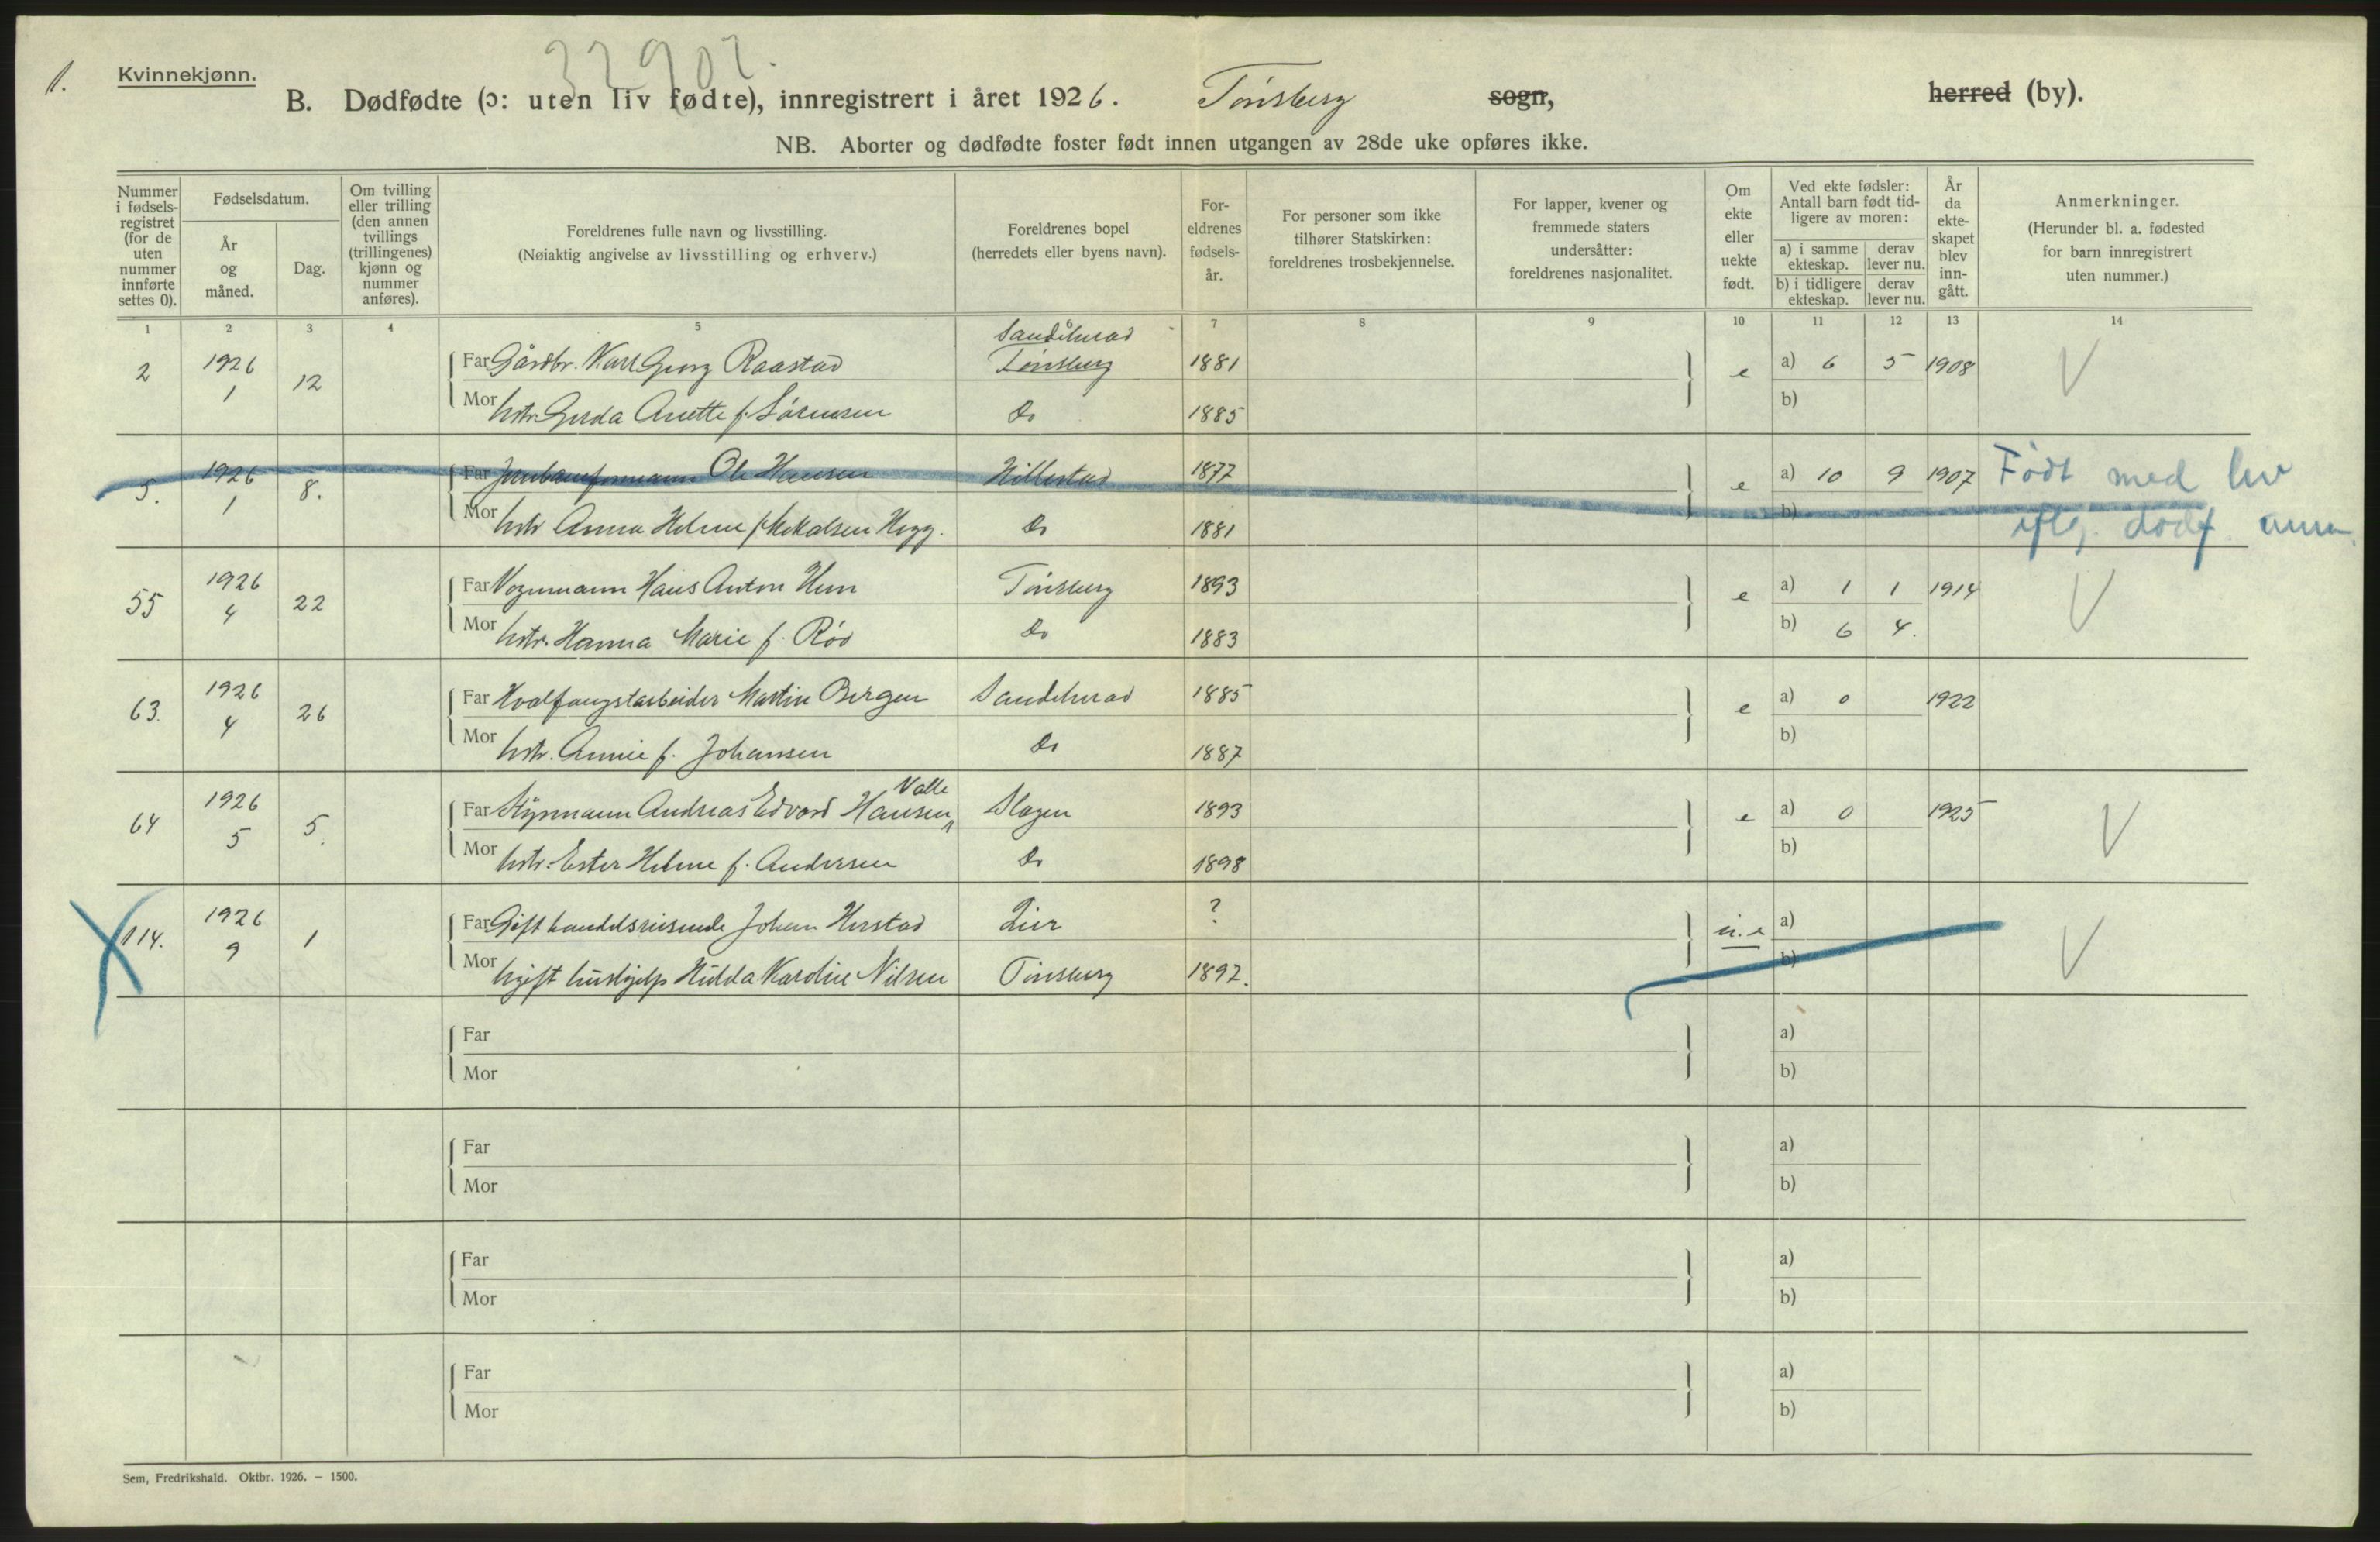 1.
Kvinnekjønn.
32902.
B. Dødfødte (ɔ: uten liv fødte), innregistrert i året 1926. Tønsberg sogn, herred (by).
NB. Aborter og dødfødte foster født innen utgangen av 28de uke opføres ikke.
Nummer i fødsels-registret (for de uten nummer innførte settes 0).
Fødselsdatum.
År og måned.
Dag.
Om tvilling eller trilling (den annen tvillings (trillingenes) kjønn og nummer anføres).
Foreldrenes fulle navn og livsstilling.
(Nøiaktig angivelse av livsstilling og erhverv.)
Foreldrenes bopel
(herredets eller byens navn).
For-eldrenes fødsels-år.
For personer som ikke tilhører Statskirken: foreldrenes trosbekjennelse.
For lapper, kvener og fremmede staters undersåtter: foreldrenes nasjonalitet.
Om ekte eller uekte født.
Ved ekte fødsler: Antall barn født tid-ligere av moren:
a) i samme ekteskap. derav lever nu.
b) i tidligere ekteskap. derav lever nu.
År da ekte-skapet blev inn-gått.
Anmerkninger.
(Herunder bl. a. fødested for barn innregistrert uten nummer.)
1 2 3 4 5 6 7 8 9 10 11 12 13 14
Sandeherad
2 1926 1 12 Far Gårdbr. Karl Georg Raastad Tønsberg 1881 e a) 6 5 1908 V
Mor hstr. Gerda Anette f. Sørensen Do 1885 b)
5. 1926 1 8. Far Jernbaneformann Ole Hansen Hillestad 1877 e a) 10 9 1907 Født med liv
Mor hstr Anna Helene f. Mikalsen Hegg. Do 1881 b) iflg. dødf. anm.
55 1926 4 22 Far Vognmann Hans Anton Hem Tønsberg 1893 e a) 1 1 1914 V
Mor hstr. Hanna Marie f. Rød Do 1883 b) 6 4.
63. 1926 4 26 Far Hvalfangstarbeider Martin Bergen Sandeherad 1885 e a) 0 1922
Mor hstr. Annie f. Johansen Do 1887 b)
Valle
64 1926 5 5. Far Styrmann Andreas Edvard Hansen Slagen 1893 e a) 0 1925 V
Mor hstr. Ester Helene f. Andersen Do 1898 b)
114. 1926 9 1 Far Gift handelsreisende Johan Herstad Lier ? u.e a) V
Mor Ugift hushjelp Hilda Karoline Nilsen Tønsberg 1897. b)
Far a)
Mor b)
Far a)
Mor b)
Far a)
Mor b)
Far a)
Mor b)
Sem, Fredrikshald. Oktbr. 1926. – 1500.